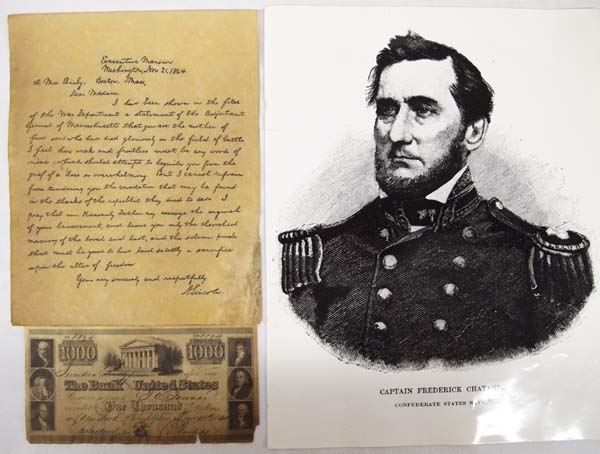 Executive Mansion
Washington, Nov 21, 1864
To Mrs Bixby, Boston, Mass,
Dear Madam.
I have been shown in the files
of the War Department a statement of the Adjutant
General of Massachusetts that you are the mother of
five sons who have died gloriously on the field of battle
I feel how weak and fruitless must be any word of
mine which should attempt to beguile you from the
grief of a loss so overwhelming. But I cannot refrain
from tendering you the consolation that may be found
in the thanks of the republic they died to save. I
pray that our Heavenly Father may assuage the anguish
of your bereavement, and leave you only the cherished
memory of the loved and lost, and the solemn pride
that must be yours to have laid so costly a sacrifice
upon the altar of freedom
Yours very sincerely and respectfully
A. Lincoln
1000
1000
The Bank United States
One Thousand
CAPTAIN FREDERICK
CONFEDERATE STATES